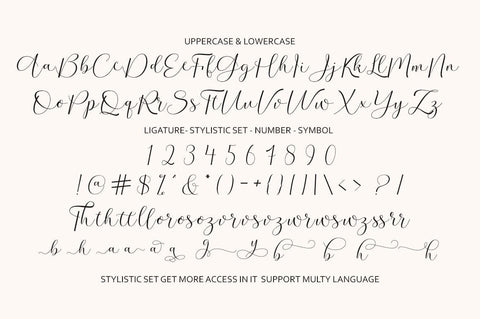 UPPERCASE & LOWERCASE
Aa Bb Cc Dd Ee Ff Gg Hh Ii Jj Kk Ll Mm Nn
Oo Pp Qq Rr Ss Tt Uu Vv Ww Xx Yy Zz
LIGATURE- STYLISTIC SET - NUMBER - SYMBOL
1 2 3 4 5 6 7 8 9 0
! @ # $ % ^ & * ( ) - + { } | / | \ < > ? /
Th th tt ll or os oz or vr us ux vr wr ws wz ss rr
b h a a a q g y b b h h
STYLISTIC SET GET MORE ACCESS IN IT SUPPORT MULTY LANGUAGE